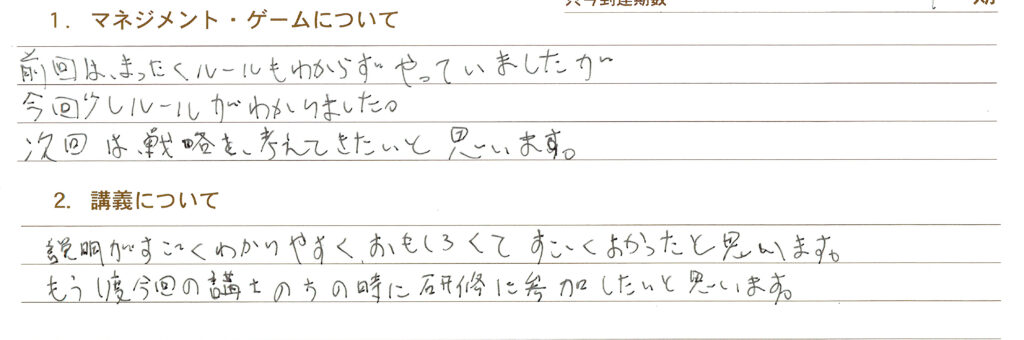 1. マネジメント・ゲームについて
前回は、まったくルールもわからずやっていましたが
今回少しルールがわかりました。
次回は、戦略を、考えてきたいと思います。
2. 講義について
説明がすごくわかりやすく、おもしろくてすごくよかったと思います。
もう1度今回の講士のちの時に研修に参加したいと思います。